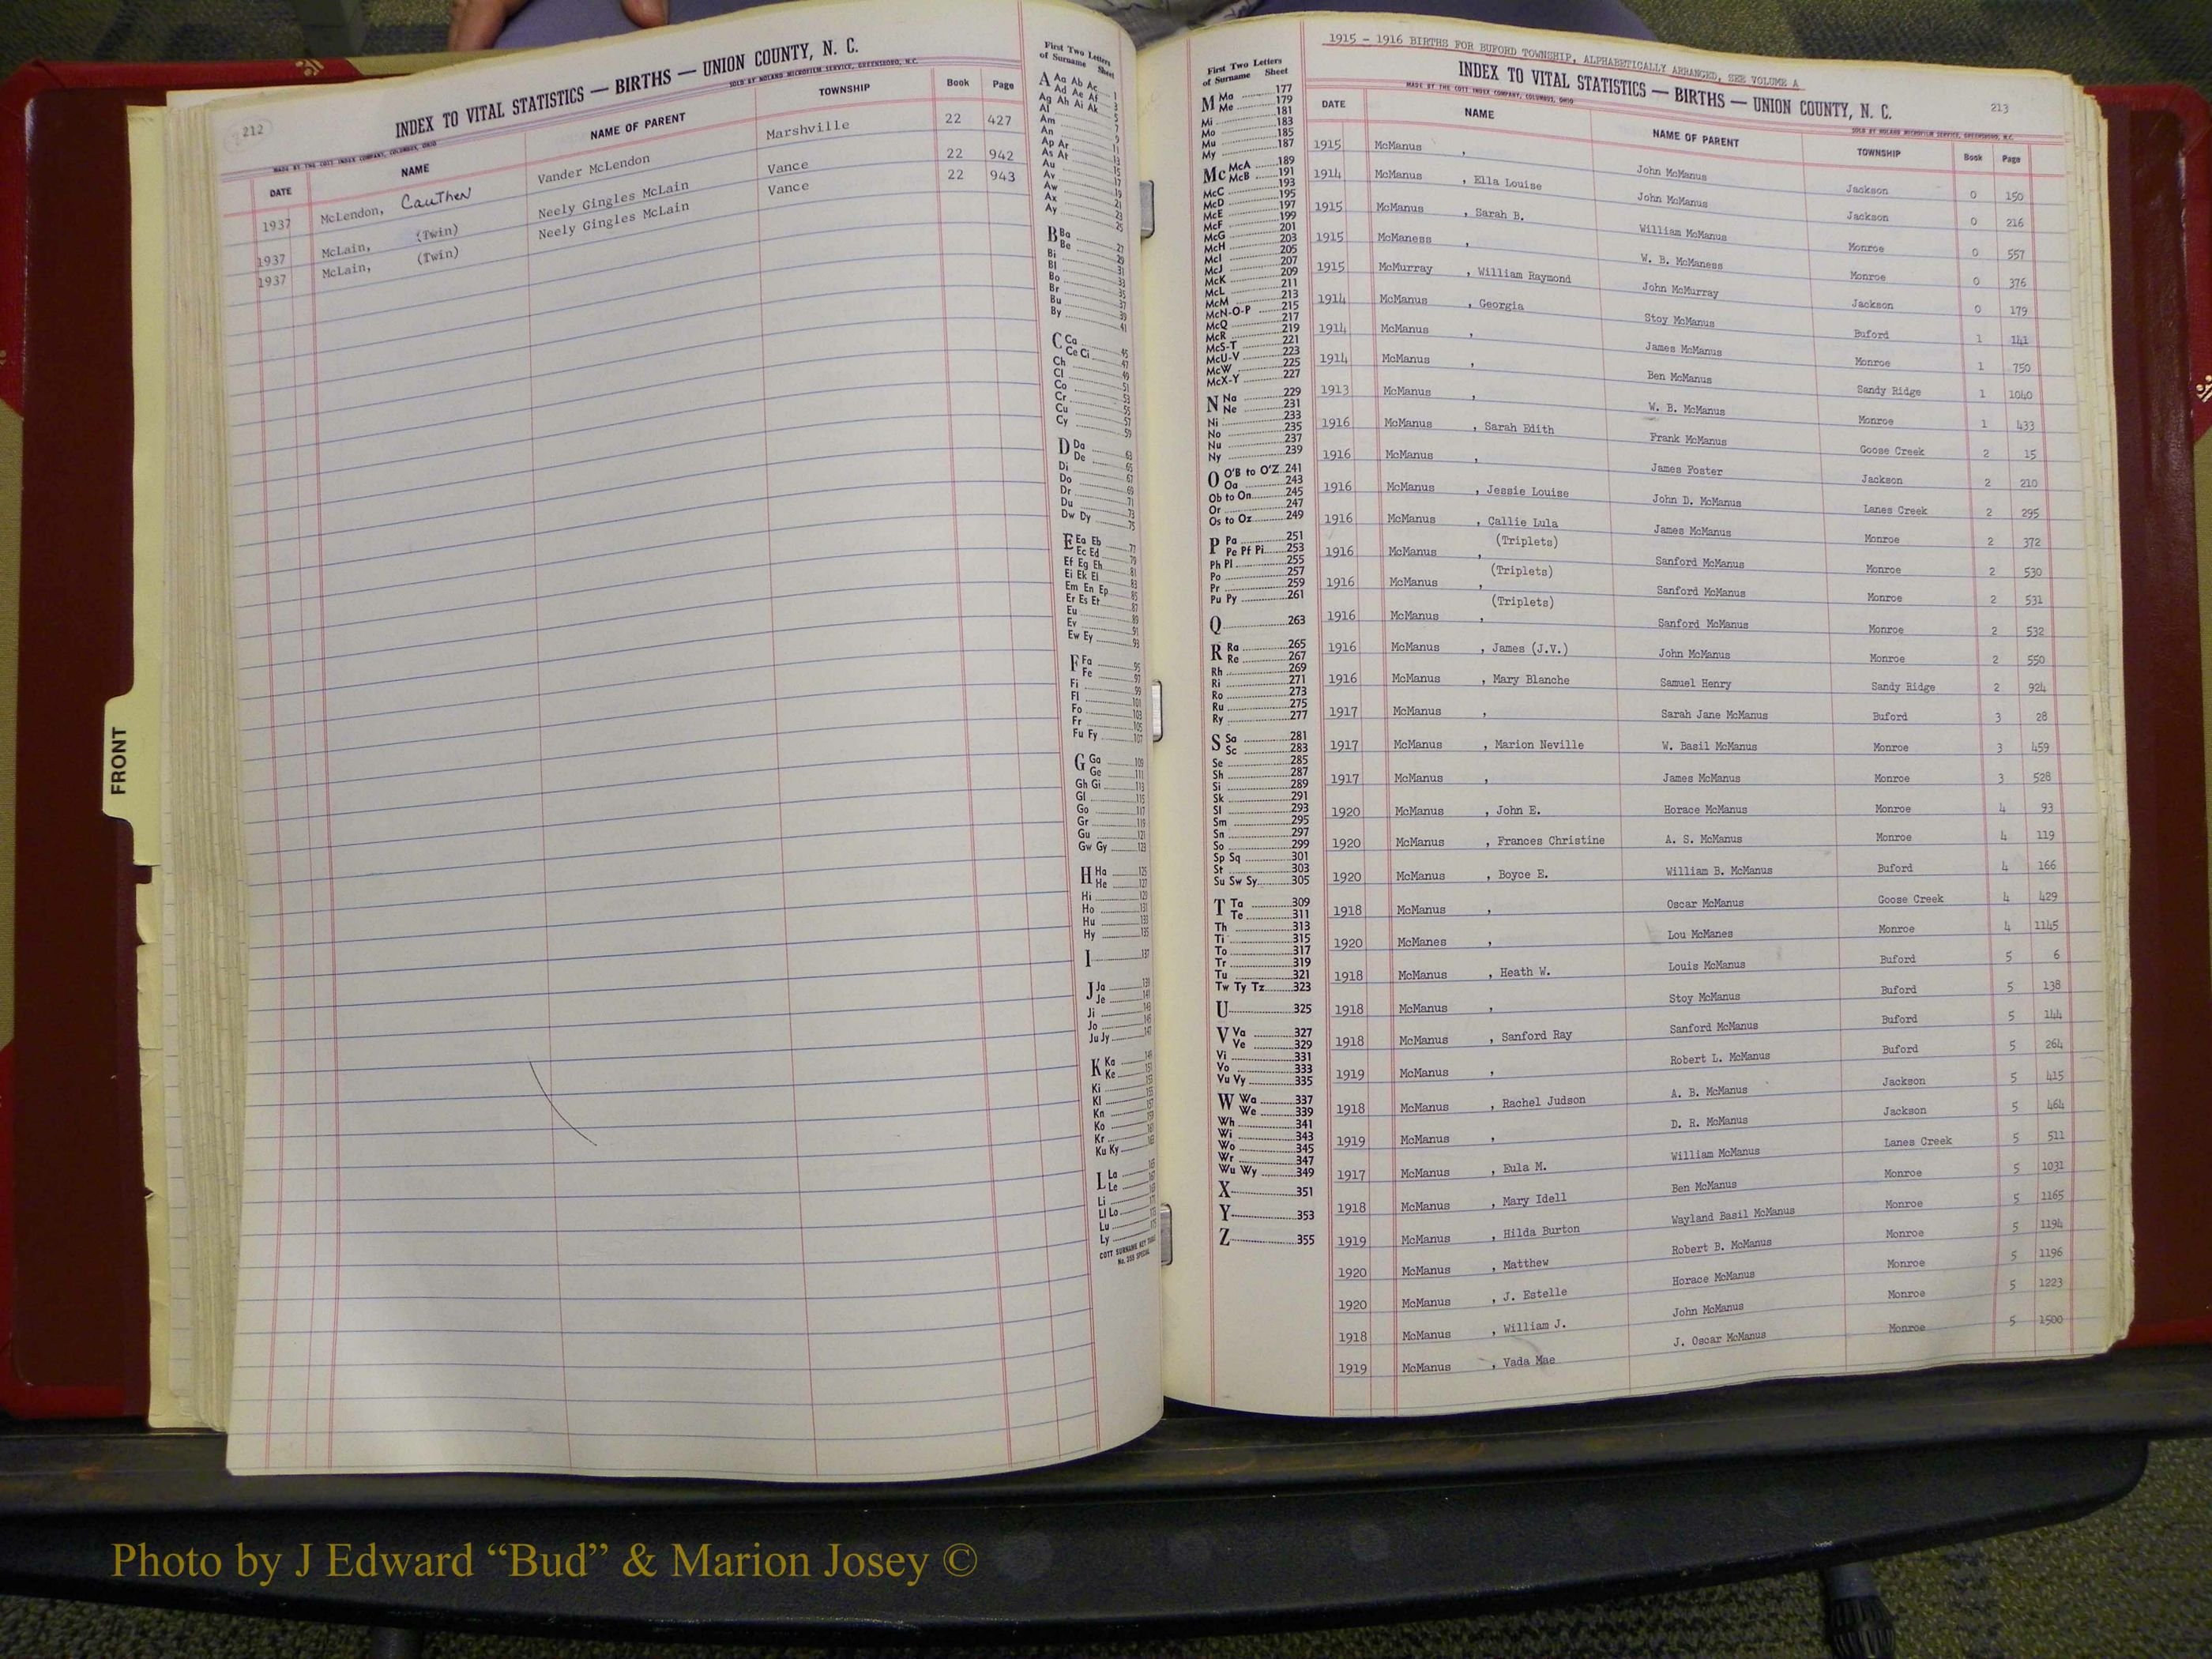 212
INDEX TO VITAL STATISTICS — BIRTHS — UNION COUNTY, N. C.
MADE BY THE COTT INDEX COMPANY, COLUMBUS, OHIO SOLD BY NOLAND MICROFILM SERVICE, GREENSBORO, N.C.
DATE NAME NAME OF PARENT TOWNSHIP Book Page
1937 McLendon, Cauthen Vander McLendon Marshville 22 427
1937 McLain, (Twin) Neely Gingles McLain Vance 22 942
1937 McLain, (Twin) Neely Gingles McLain Vance 22 943
First Two Letters
of Surname Sheet
A Aa Ab Ac 1
Ad Ae Af 3
Ag Ah Ai Ak 5
Al 7
Am 9
An 11
Ap Ar 13
As At 15
Au 17
Av 19
Aw 21
Ax 23
Ay 25
B Ba 27
Be 29
Bi 31
Bl 33
Bo 35
Br 37
Bu 39
By 41
C Ca 45
Ce Ci 47
Ch 49
Cl 51
Co 53
Cr 55
Cu 57
Cy 59
D Da 63
De 65
Di 67
Do 69
Dr 71
Du 73
Dw Dy 75
E Ea Eb 77
Ec Ed 79
Ef Eg Eh 81
Ei Ek El 83
Em En Ep 85
Er Es Et 87
Eu 89
Ev 91
Ew Ey 93
F Fa 95
Fe 97
Fi 99
Fl 101
Fo 103
Fr 105
Fu Fy 107
G Ga 109
Ge 111
Gh Gi 113
Gl 115
Go 117
Gr 119
Gu 121
Gw Gy 123
H Ha 125
He 127
Hi 129
Ho 131
Hu 133
Hy 135
I 137
J Ja 139
Je 141
Ji 143
Jo 145
Ju Jy 147
K Ka 149
Ke 151
Ki 153
Kl 155
Kn 157
Ko 159
Kr 161
Ku Ky 163
L La 165
Le
Li
Ll Lo
Lu
Ly
COTT SURNAME KEY TABLE
No. 355 SPECIAL
FRONT
First Two Letters
of Surname Sheet
M Ma 177
Me 179
Mi 181
Mo 183
Mu 185
My 187
Mc McA 189
McB 191
McC 193
McD 195
McE 197
McF 199
McG 201
McH 203
McI 205
McJ 207
McK 209
McL 211
McM 213
McN-O-P 215
McQ 217
McR 219
McS-T 221
McU-V 223
McW 225
McX-Y 227
N Na 229
Ne 231
Ni 233
No 235
Nu 237
Ny 239
O O'B to O'Z 241
Oa 243
Ob to On 245
Or 247
Os to Oz 249
P Pa 251
Pe Pf Pi 253
Ph Pl 255
Po 257
Pr 259
Pu Py 261
Q 263
R Ra 265
Re 267
Rh 269
Ri 271
Ro 273
Ru 275
Ry 277
S Sa 281
Sc 283
Se 285
Sh 287
Si 289
Sk 291
Sl 293
Sm 295
Sn 297
So 299
Sp Sq 301
St 303
Su Sw Sy 305
T Ta 309
Te 311
Th 313
Ti 315
To 317
Tr 319
Tu 321
Tw Ty Tz 323
U 325
V Va 327
Ve 329
Vi 331
Vo 333
Vu Vy 335
W Wa 337
We 339
Wh 341
Wi 343
Wo 345
Wr 347
Wu Wy 349
X 351
Y 353
Z 355
1915 - 1916 BIRTHS FOR BUFORD TOWNSHIP, ALPHABETICALLY ARRANGED, SEE VOLUME A
INDEX TO VITAL STATISTICS — BIRTHS — UNION COUNTY, N. C. 213
MADE BY THE COTT INDEX COMPANY, COLUMBUS, OHIO SOLD BY NOLAND MICROFILM SERVICE, GREENSBORO, N.C.
DATE NAME NAME OF PARENT TOWNSHIP Book Page
1915 McManus , John McManus Jackson 0 150
1914 McManus , Ella Louise John McManus Jackson 0 216
1915 McManus , Sarah B. William McManus Monroe 0 557
1915 McManess , W. B. McManess Monroe 0 376
1915 McMurray , William Raymond John McMurray Jackson 0 179
1914 McManus , Georgia Stoy McManus Buford 1 141
1914 McManus , James McManus Monroe 1 750
1914 McManus , Ben McManus Sandy Ridge 1 1040
1913 McManus , W. B. McManus Monroe 1 433
1916 McManus , Sarah Edith Frank McManus Goose Creek 2 15
1916 McManus , James Foster Jackson 2 210
1916 McManus , Jessie Louise John D. McManus Lanes Creek 2 295
1916 McManus , Callie Lula James McManus Monroe 2 372
1916 McManus , (Triplets) Sanford McManus Monroe 2 530
1916 McManus , (Triplets) Sanford McManus Monroe 2 531
1916 McManus , (Triplets) Sanford McManus Monroe 2 532
1916 McManus , James (J.V.) John McManus Monroe 2 550
1916 McManus , Mary Blanche Samuel Henry Sandy Ridge 2 924
1917 McManus , Sarah Jane McManus Buford 3 28
1917 McManus , Marion Neville W. Basil McManus Monroe 3 459
1917 McManus , James McManus Monroe 3 528
1920 McManus , John E. Horace McManus Monroe 4 93
1920 McManus , Frances Christine A. S. McManus Monroe 4 119
1920 McManus , Boyce E. William B. McManus Buford 4 166
1918 McManus , Oscar McManus Goose Creek 4 429
1920 McManes , Lou McManes Monroe 4 1145
1918 McManus , Heath W. Louis McManus Buford 5 6
1918 McManus , Stoy McManus Buford 5 138
1918 McManus , Sanford Ray Sanford McManus Buford 5 144
1919 McManus , Robert L. McManus Buford 5 264
1918 McManus , Rachel Judson A. B. McManus Jackson 5 415
1919 McManus , D. R. McManus Jackson 5 464
1917 McManus , Eula M. William McManus Lanes Creek 5 511
1918 McManus , Mary Idell Ben McManus Monroe 5 1031
1919 McManus , Hilda Burton Wayland Basil McManus Monroe 5 1165
1920 McManus , Matthew Robert B. McManus Monroe 5 1194
1920 McManus , J. Estelle Horace McManus Monroe 5 1196
1918 McManus , William J. John McManus Monroe 5 1223
1919 McManus , Vada Mae J. Oscar McManus Monroe 5 1500
Photo by J Edward “Bud” & Marion Josey ©